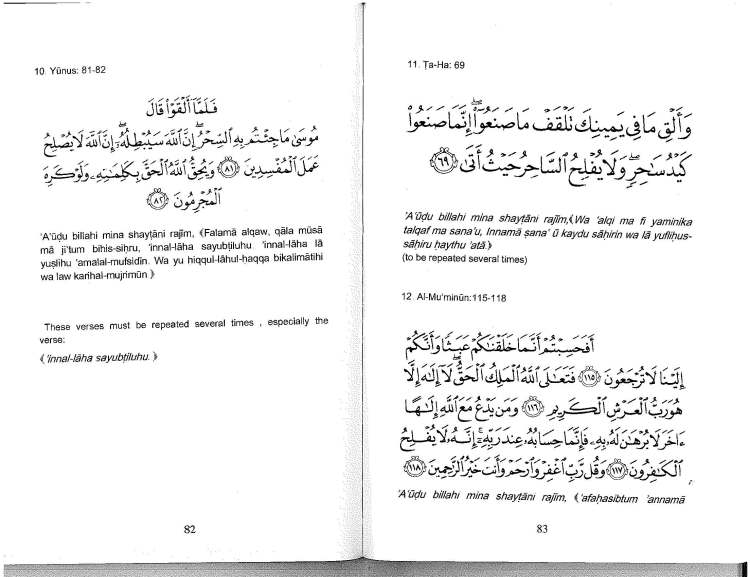 10. Yūnus: 81-82
فَلَمَّآ أَلْقَوْا۟ قَالَ
مُوسَىٰ مَا جِئْتُم بِهِ ٱلسِّحْرُ إِنَّ ٱللَّهَ سَيُبْطِلُهُۥٓ إِنَّ ٱللَّهَ لَا يُصْلِحُ
عَمَلَ ٱلْمُفْسِدِينَ ﴿٨١﴾ وَيُحِقُّ ٱللَّهُ ٱلْحَقَّ بِكَلِمَٰتِهِۦ وَلَوْ كَرِهَ
ٱلْمُجْرِمُونَ ﴿٨٢﴾
'A'ūḏu billahi mina shayṭāni rajīm, ⟪Falamā alqaw, qāla mūsā
mā ji'tum bihis-siḥru, 'innal-lāha sayubṭiluhu. 'innal-lāha lā
yuṣliḥu 'amalal-mufsidīn. Wa yu hiqqul-lāhul-ḥaqqa bikalimātihi
wa law karihal-mujrimūn ⟫
These verses must be repeated several times , especially the
verse:
⟪ 'innal-lāha sayubṭiluhu. ⟫
82
11. Ṭa-Ha: 69
وَأَلْقِ مَا فِى يَمِينِكَ تَلْقَفْ مَا صَنَعُوٓا۟ إِنَّمَا صَنَعُوا۟
كَيْدُ سَٰحِرٍ وَلَا يُفْلِحُ ٱلسَّاحِرُ حَيْثُ أَتَىٰ ﴿٦٩﴾
'A'ūḏu billahi mina shayṭāni rajīm,⟪Wa 'alqi ma fi yaminika
talqaf ma sana'u, Innamā ṣana' ū kaydu sāḥirin wa lā yufliḥus-
sāḥiru ḥaythu 'atā⟫
(to be repeated several times)
12. Al-Mu'minūn:115-118
أَفَحَسِبْتُمْ أَنَّمَا خَلَقْنَٰكُمْ عَبَثًا وَأَنَّكُمْ
إِلَيْنَا لَا تُرْجَعُونَ ﴿١١٥﴾ فَتَعَٰلَى ٱللَّهُ ٱلْمَلِكُ ٱلْحَقُّ لَآ إِلَٰهَ إِلَّا
هُوَ رَبُّ ٱلْعَرْشِ ٱلْكَرِيمِ ﴿١١٦﴾ وَمَن يَدْعُ مَعَ ٱللَّهِ إِلَٰهًا
ءَاخَرَ لَا بُرْهَٰنَ لَهُۥ بِهِۦ فَإِنَّمَا حِسَابُهُۥ عِندَ رَبِّهِۦٓ إِنَّهُۥ لَا يُفْلِحُ
ٱلْكَٰفِرُونَ ﴿١١٧﴾ وَقُل رَّبِّ ٱغْفِرْ وَٱرْحَمْ وَأَنتَ خَيْرُ ٱلرَّٰحِمِينَ ﴿١١٨﴾
'A'ūḏu billahi mina shayṭāni rajīm, ⟪'afaḥasibtum 'annamā
83